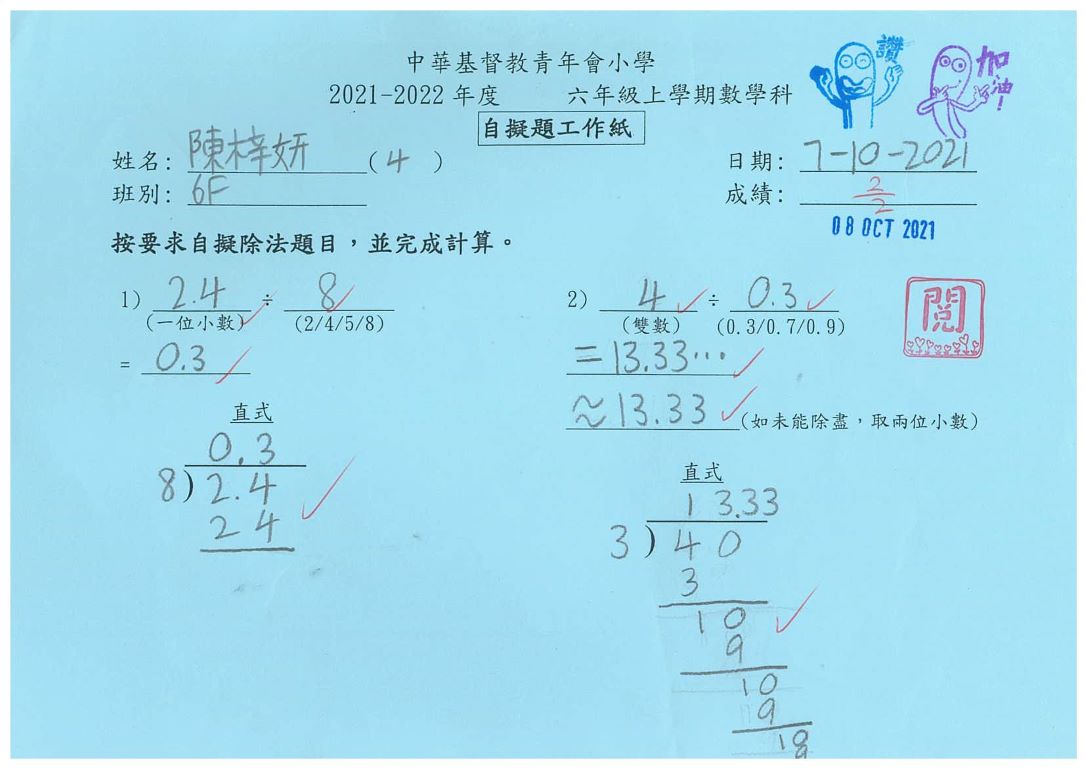 中華基督教青年會小學
2021-2022 年度 六年級上學期數學科
自擬題工作紙
讚
加油!
姓名: 陳梓妍 (4)
日期: 7-10-2021
班別: 6F
成績: 2/2
08 OCT 2021
按要求自擬除法題目，並完成計算。
1) 2.4 ÷ 8
(一位小數) (2/4/5/8)
= 0.3
直式
0.3
8) 2.4
24
2) 4 ÷ 0.3
(雙數) (0.3/0.7/0.9)
閱
=13.33…
≈13.33 (如未能除盡，取兩位小數)
直式
13.33
3) 40
3
10
9
10
9